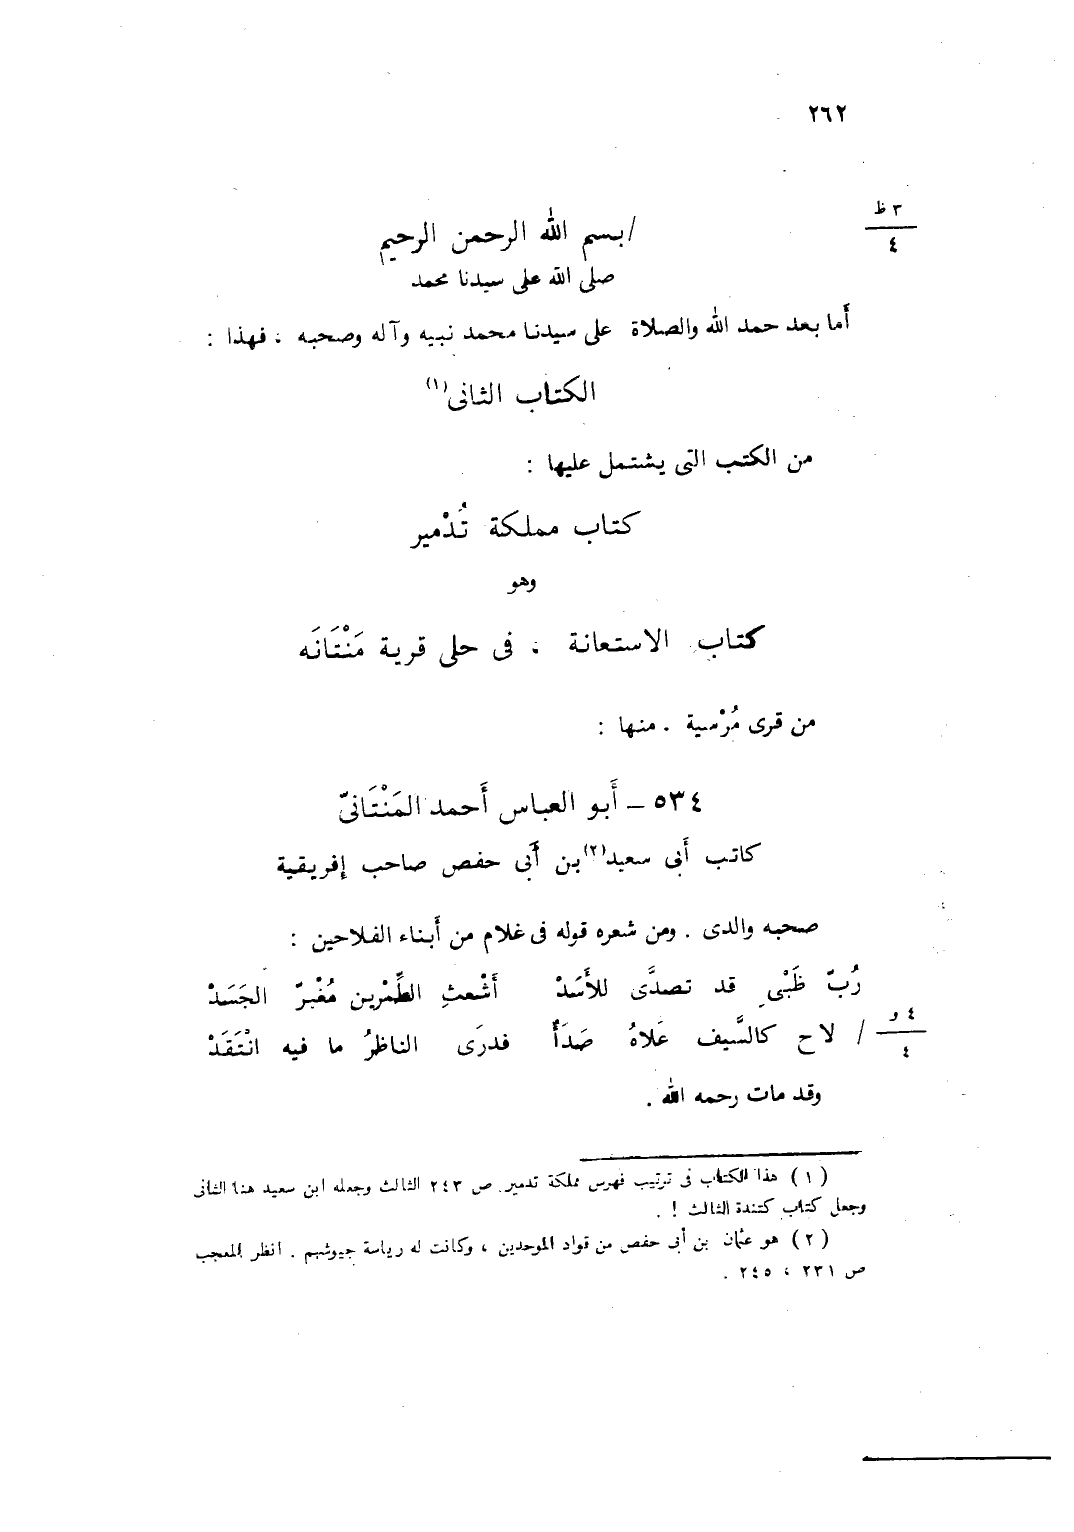 ٢٦٢
٣ ظ
٤
/ بسم الله الرحمن الرحيم
صلى الله على سيدنا محمد
أما بعد حمد الله والصلاة على سيدنا محمد نبيه وآله وصحبه ، فهذا :
الكتاب الثانى (١)
من الكتب التى يشتمل عليها :
كتاب مملكة تُدْمير
وهو
كتاب الاستعانة ، فى حلى قرية مَنْتَانَه
من قرى مُرْسية . منها :
٥٣٤ – أَبو العباس أَحمد المَنْتَانىّ
كاتب أَبى سعيد (٢) بن أَبى حفص صاحب إفريقية
صحبه والدى . ومن شعره قوله فى غلام من أَبناء الفلاحين :
رُبّ ظَبْىٍ قد تصدَّى للأَسَدْ أَشْعثِ الطِّمْرين مُغْبرّ الجَسَدْ
٤ و
٤
/ لاح كالسَّيف عَلاهُ صَدَأٌ فدرَى الناظرُ ما فيه انْتَقَدْ
وقد مات رحمه الله .
( ١ ) هذا الكتاب فى ترتيب فهرس مملكة تدمير ص ٢٤٣ الثالث وجعله ابن سعيد هنا الثانى
وجعل كتاب كتندة الثالث ! .
( ٢ ) هو عثمان بن أبى حفص من قواد الموحدين ، وكانت له رياسة جيوشهم . انظر المعجب
ص ٢٣١ ، ٢٤٥ .